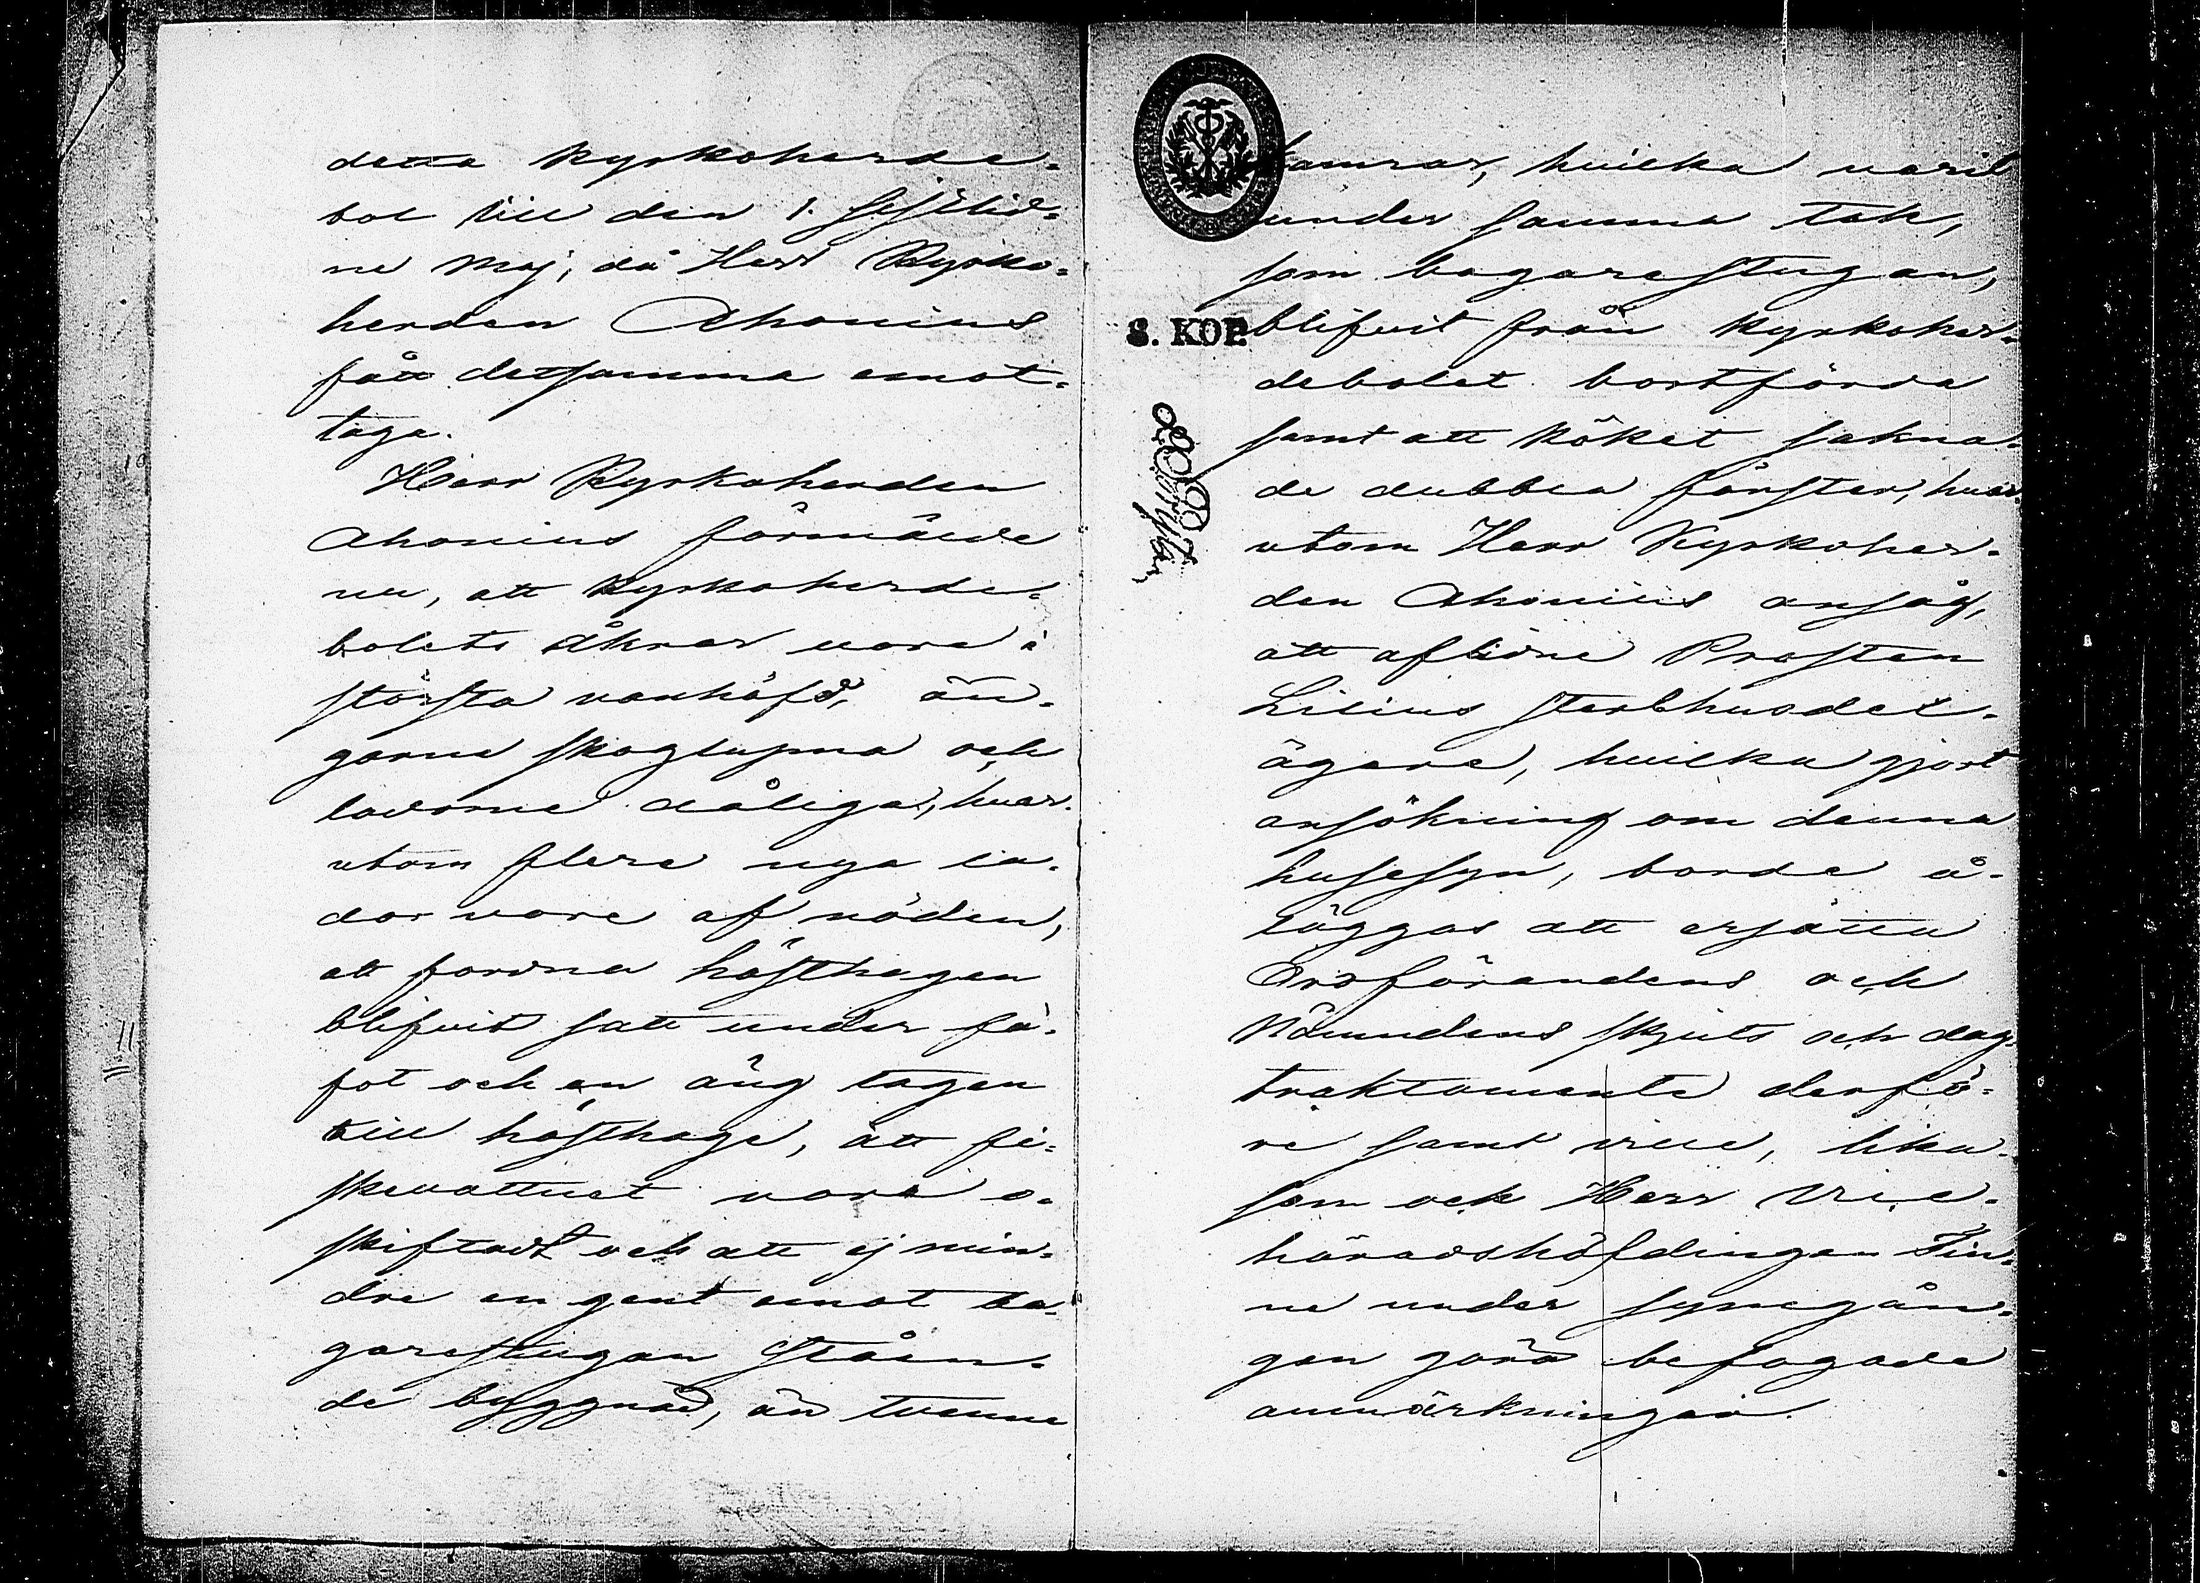 detta kyrkoherde-
bol till den 1. sistlid-
ne Maj, då Herr Kyrko-
herden Ahonius
fått detsamma emot-
taga.
Herr Kyrkoherden
Ahonius förmälde
nu, att kyrkoherde-
bolets åkrar vore i
största vanhäfd, än-
garna skoglupna och
ladorne dåliga, hvar-
utom flere nya la-
dor vore af nöden,
att fordna hästhagen
blifvit satt under få-
fot och en äng tagen
till hästhage, att fi-
skevattnet vore o-
skiftadt och att ej min-
dre en gent emot ba-
garestugan ståen-
de byggnad, än tvenne
kamrar, hvilka varit
under samma tak,
som bagarestugan,
8. KOP. blifvit från kyrkoher-
debolet bortförda
samt att köket sakna-
de dubbla fönster, hvar-
utom Herr Kyrkoher-
den Ahonius ansåg,
att aflidne Prosten
Lilius sterbhusdel-
ägare, hvilka gjort
ansökning om denna
husesyn, borde å-
läggas att ersätta
Ordförandens och
Nämndens skjuts och dag-
traktamente derfö-
re samt ville, lika-
som ock Herr Vice-
häradshöfdingen Fin-
ne under synegån-
gen göra befogade
anmärkningar.
10
11